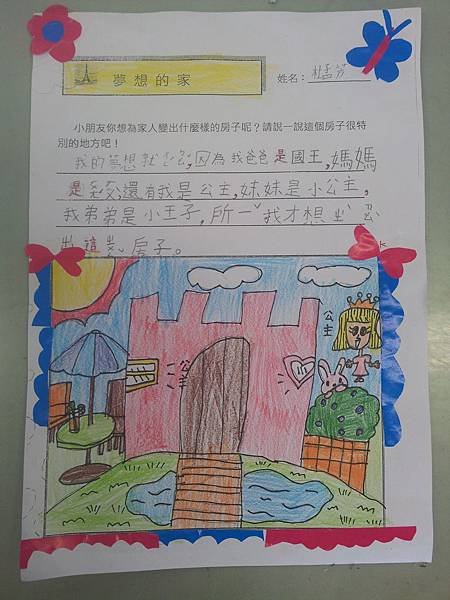 夢想的家
姓名：杜孟芳
小朋友你想為家人變出什麼樣的房子呢？請說一說這個房子很特
別的地方吧！
我的夢想ㄐㄧㄚ，因為我爸爸是國王，媽媽
是，還有我是公主，妹妹是小公主，
我弟弟是小王子，所一ˇ我才想
出這房子。
公主
公主